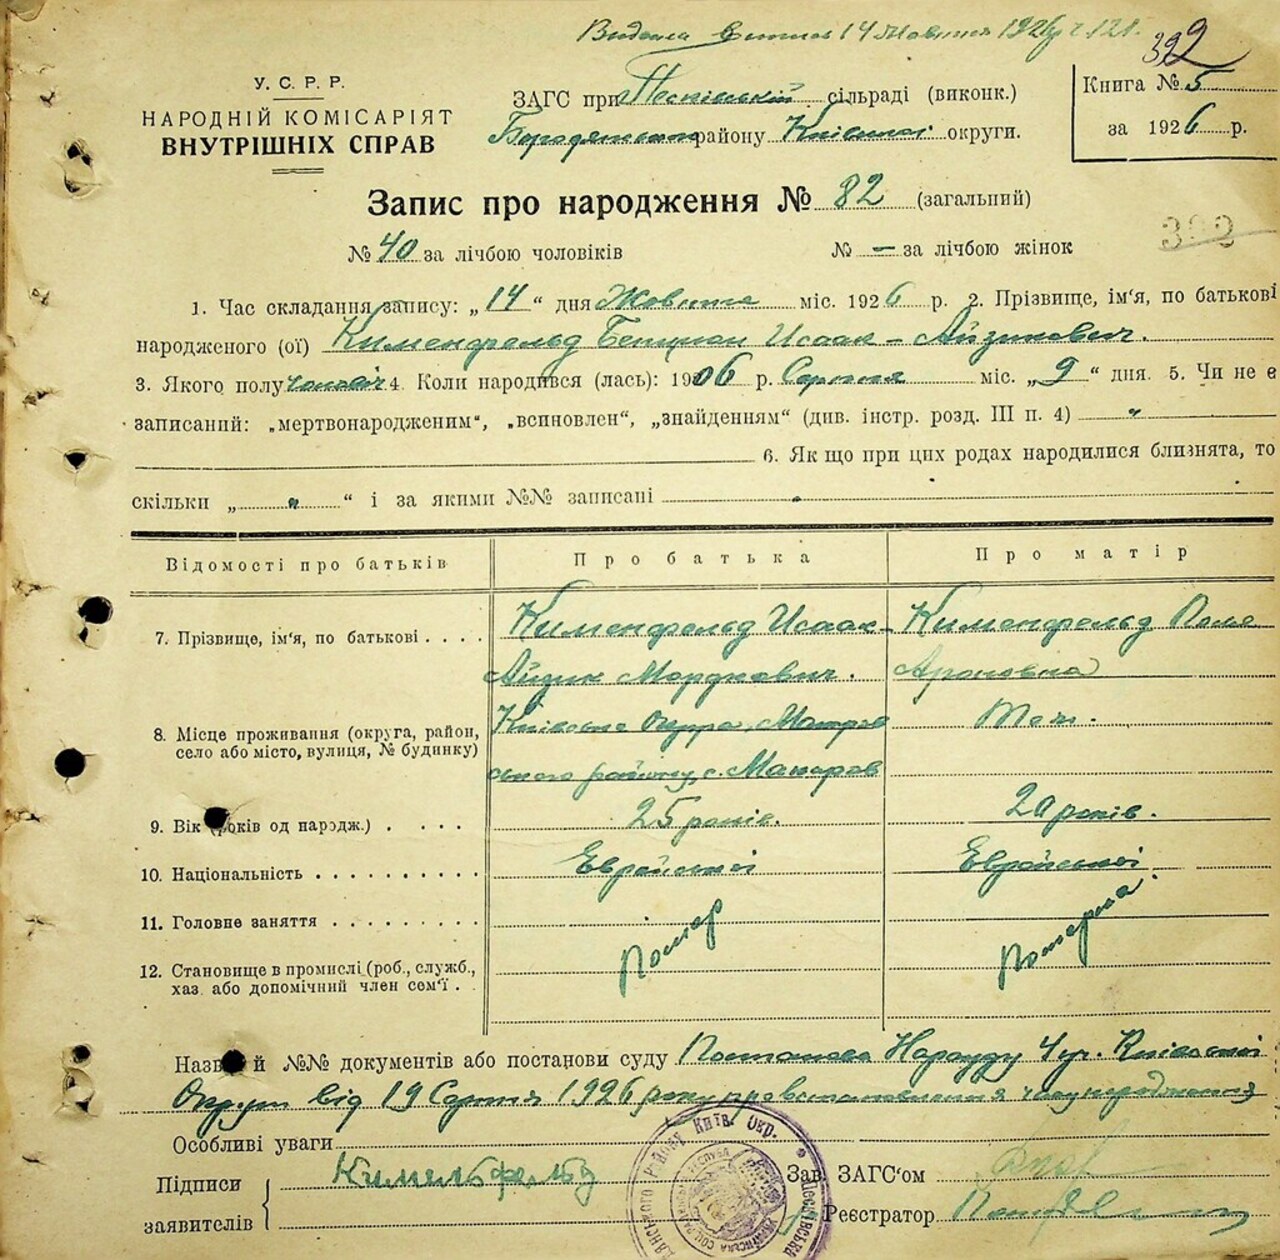 Видана витяг 14 Жовтня 1926 р. ч. 121.
392
У. С. Р. Р.
НАРОДНІЙ КОМІСАРІЯТ
ВНУТРІШНІХ СПРАВ
ЗАГС при Пісківській сільраді (виконк.)
Бородянського району Київської округи.
Книга № 5
за 1926 р.
Запис про народження № 82 (загальний)
№ 40 за лічбою чоловіків № — за лічбою жінок
1. Час складання запису: „14“ дня Жовтня міс. 1926 р. 2. Прізвище, ім'я, по батькові
народженого (ої) Кименфельд Исаак-Айзикович.
3. Якого полу чоловіч 4. Коли народився (лась): 1906 р. Серпня міс. „9“ дня. 5. Чи не є
записаний: „мертвонародженим“, „всиновлен“, „знайденням“ (див. інстр. розд. III п. 4) „
6. Як що при цих родах народилися близнята, то
скільки „ „ “ і за якими №№ записані
Відомості про батьків
Про батька
Про матір
7. Прізвище, ім'я, по батькові . . . .
Кименфельд Исаак-
Айзик Мордкович.
Кименфельд Поля
Ароновна
8. Місце проживання (округа, район,
село або місто, вулиця, № будинку)
Київська округа, Макарів
ського району, с. Макарів
Теж.
9. Вік (років од народж.) . . . .
25 років.
20 років.
10. Національність . . . . . . . . . .
Еврейської
Еврейської
11. Головне заняття . . . . . . . . .
12. Становище в промислі (роб., служб.,
хаз. або допомічний член сем'ї . .
Помер
Померла
Назва й №№ документів або постанови суду Постанова Нарсуду 4 уч. Київської
Округи від 19 Серпня 1926 року про встановлення часу народження
Особливі уваги
Підписи
заявителів
Кимельфельд
Зав. ЗАГС'ом
Реєстратор